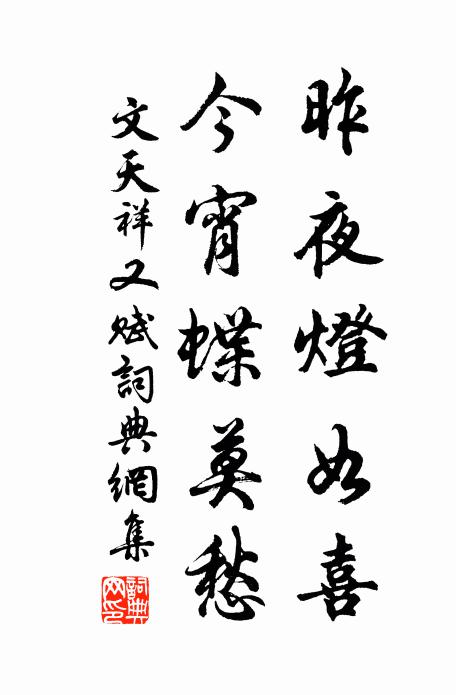 昨夜燈如喜
今宵蝶莫愁
文天祥又賦詞典網集
詞典網印